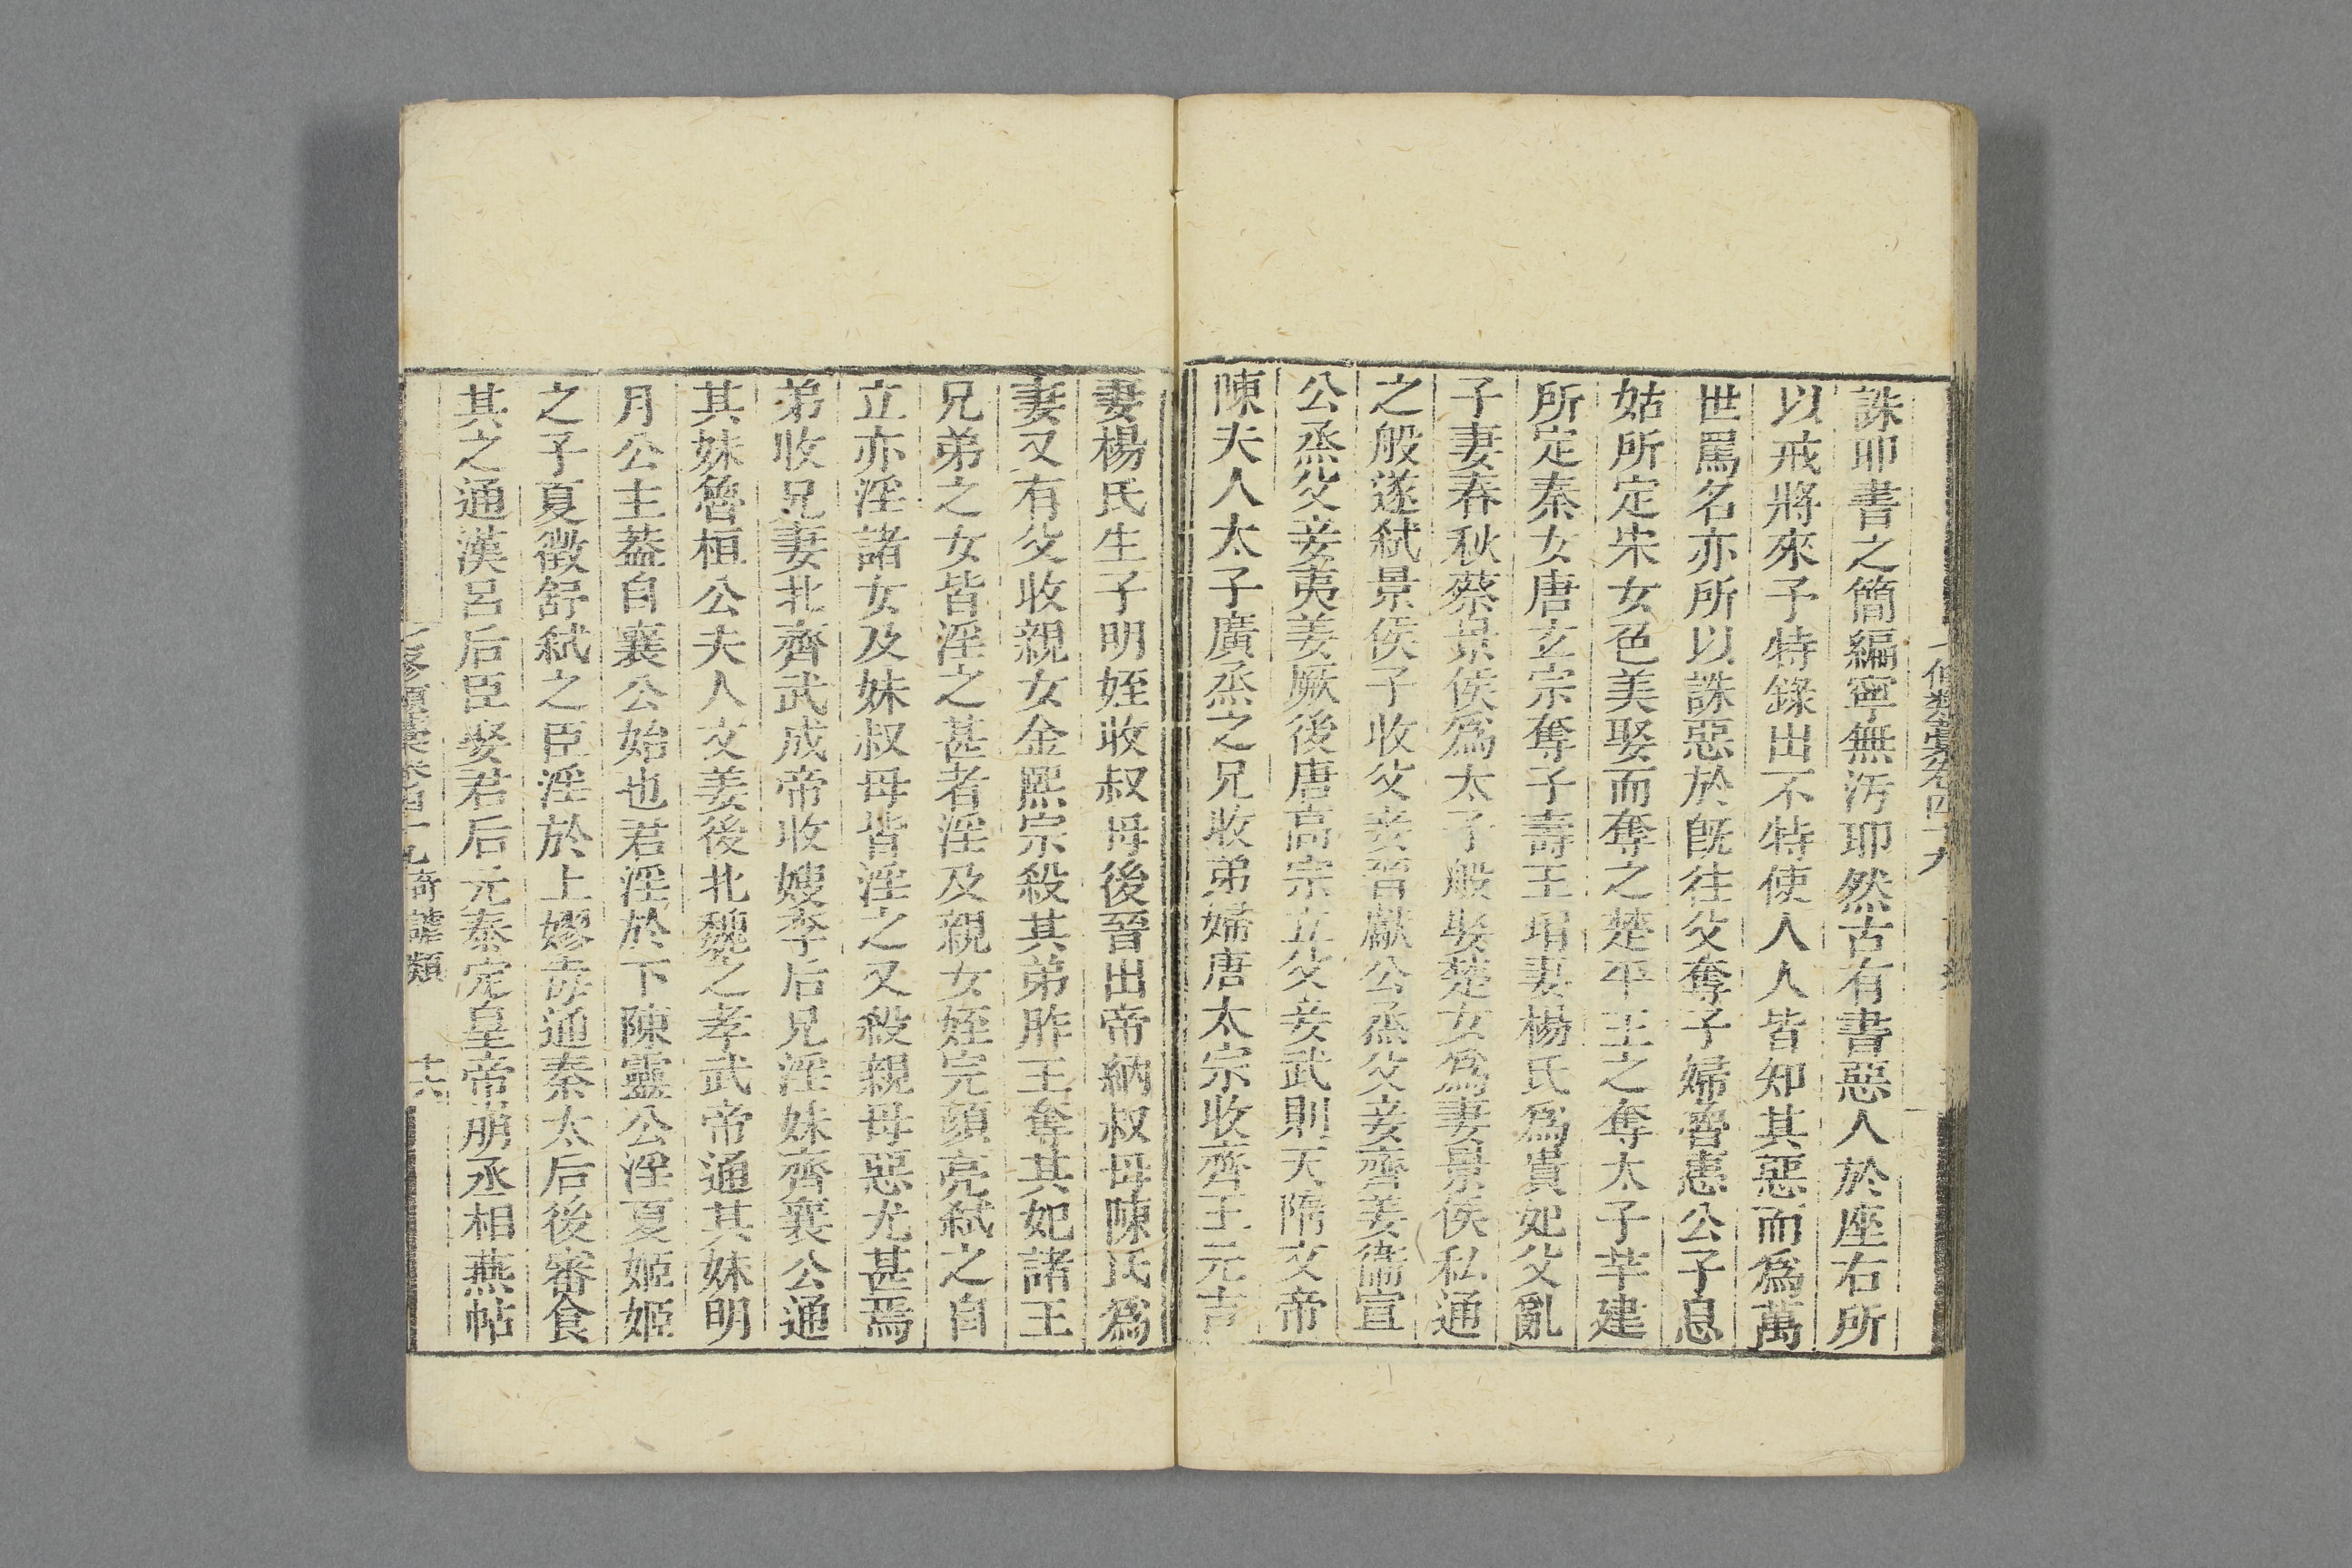 七修類藁卷四十九
誅耶書之簡編寧無汚耶然古有書惡人於座右所
以戒將來予特錄出不特使人人皆知其惡而爲萬
世罵名亦所以誅惡於旣往父奪子婦魯惠公子息
姑所定宋女色美娶而奪之楚平王之奪太子芊建
所定秦女唐玄宗奪子壽王瑁妻楊氏爲貴妃父亂
子妻春秋蔡景侯爲太子般娶楚女爲妻景侯私通
之般遂弑景侯子收父妾晉獻公烝父妾齊姜衞宣
公烝父妾夷姜厥後唐高宗立父妾武則天隋文帝
陳夫人太子廣烝之兄收弟婦唐太宗收齊王元吉
妻楊氏生子明姪收叔母後晉出帝納叔母陳氏爲
妻又有父收親女金熙宗殺其弟胙王奪其妃諸王
兄弟之女皆淫之甚者淫及親女姪完顏亮弑之自
立亦淫諸女及妹叔母皆淫之又殺親母惡尤甚焉
弟收兄妻北齊武成帝收嫂李后兄淫妹齊襄公通
其妹魯桓公夫人文姜後北魏之孝武帝通其妹明
月公主葢自襄公始也君淫於下陳靈公淫夏姬姬
之子夏徵舒弑之臣淫於上嫪毐通秦太后後審食
其之通漢呂后臣娶君后元泰定皇帝崩丞相燕帖
七修類藁卷四十九奇謔類 十六